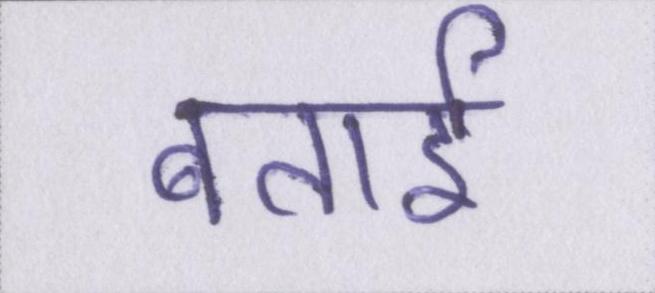 बताई